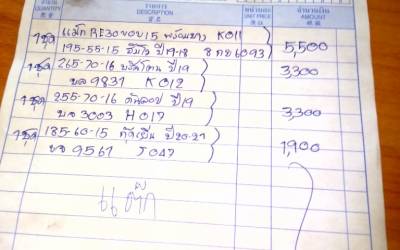 จำนวน รายการ หน่วยละ จำนวนเงิน
DESCRIPTION UNIT PRICE AMOUNT
1ชุด แม็ก RE30 ขอบ15 พร้อมยาง K011
195-55-15 ปี19-18 8 กย 6093 5,500
1ชุด 265-70-16 ปี19 3,300
บล 9831 K012
1ชุด 255-70-16 ดันลอป ปี19 3,300
บจ 3003 H017
1ชุด 185-60-15 ปี20-21 1,900
บจ 9561 J047